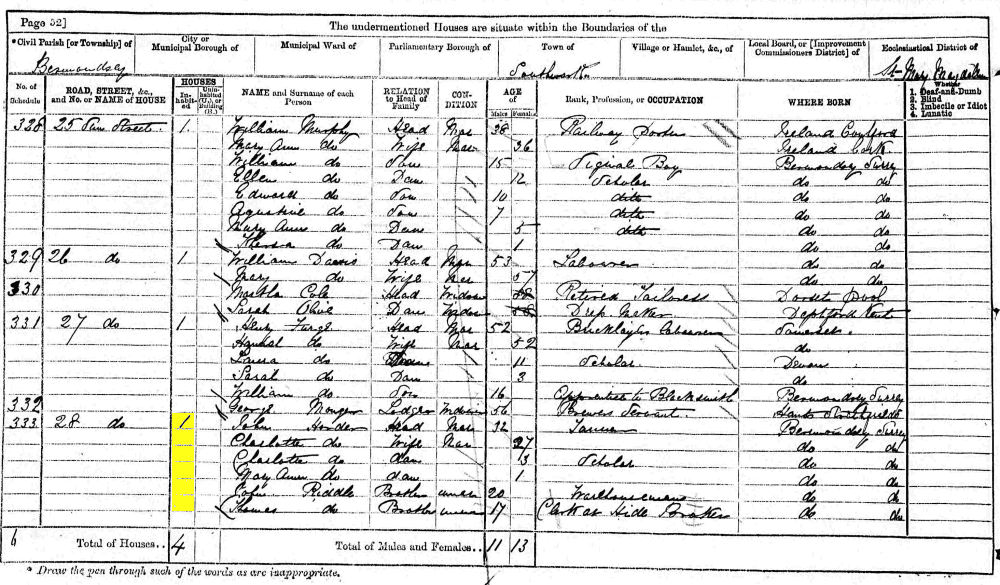 Page 52]
The undermentioned Houses are situate within the Boundaries of the
*Civil Parish [or Township] of
City or Municipal Borough of
Municipal Ward of
Parliamentary Borough of
Town of
Village or Hamlet, &c., of
Local Board, or [Improvement Commissioners District] of
Ecclesiastical District of
Bermondsey Southwark St Mary Magdalen
No. of Schedule
ROAD, STREET, &c., and No. or NAME of HOUSE
HOUSES
Inhabited
Uninhabited (U.), or Building (B.)
NAME and Surname of each Person
RELATION to Head of Family
CONDITION
AGE of
Males Females
Rank, Profession, or OCCUPATION
WHERE BORN
Whether
1. Deaf-and-Dumb
2. Blind
3. Imbecile or Idiot
4. Lunatic
328 25 Street 1 William Murphy Head Mar 38 Railway Porter Ireland
Mary Ann do Wife Mar 36 Ireland Cork
William do Son 15 Signal Boy Bermondsey Surrey
Ellen do Daur 12 Scholar do do
Edward do Son 10 ditto do do
Agustine do Son 7 ditto do do
Mary Ann do Daur 5 ditto do do
do Daur 1 do do
329 26 do 1 William Davis Head Mar 53 Labourer do do
Mary do Wife Mar 57 do do
330 Martha Cole Head Widow Retired Tailoress Dorset Pool
Sarah Daur Deptford Kent
331 27 do 1 Henry Head Mar 52 Bricklayers Labourer Somerset
Hannah do Wife Mar 52 do
Laura do Daur 11 Scholar Devon
Sarah do Daur 3 do
William do Son 16 Apprentice to Blacksmith Bermondsey Surrey
332 George Monger Lodger 56 Brewers Servant Hants
333 28 do 1 John Head Mar 32 Tanner Bermondsey Surrey
Charlotte do Wife Mar 27 do do
Charlotte do daur 3 Scholar do do
Mary Ann do daur 1 do do
John Riddle Brother unmar 20 Warehouseman do do
Thomas do Brother unmar 17 Clerk at Hide Broker do do
6 Total of Houses.. 4 Total of Males and Females.. 11 13
* Draw the pen through such of the words as are inappropriate.